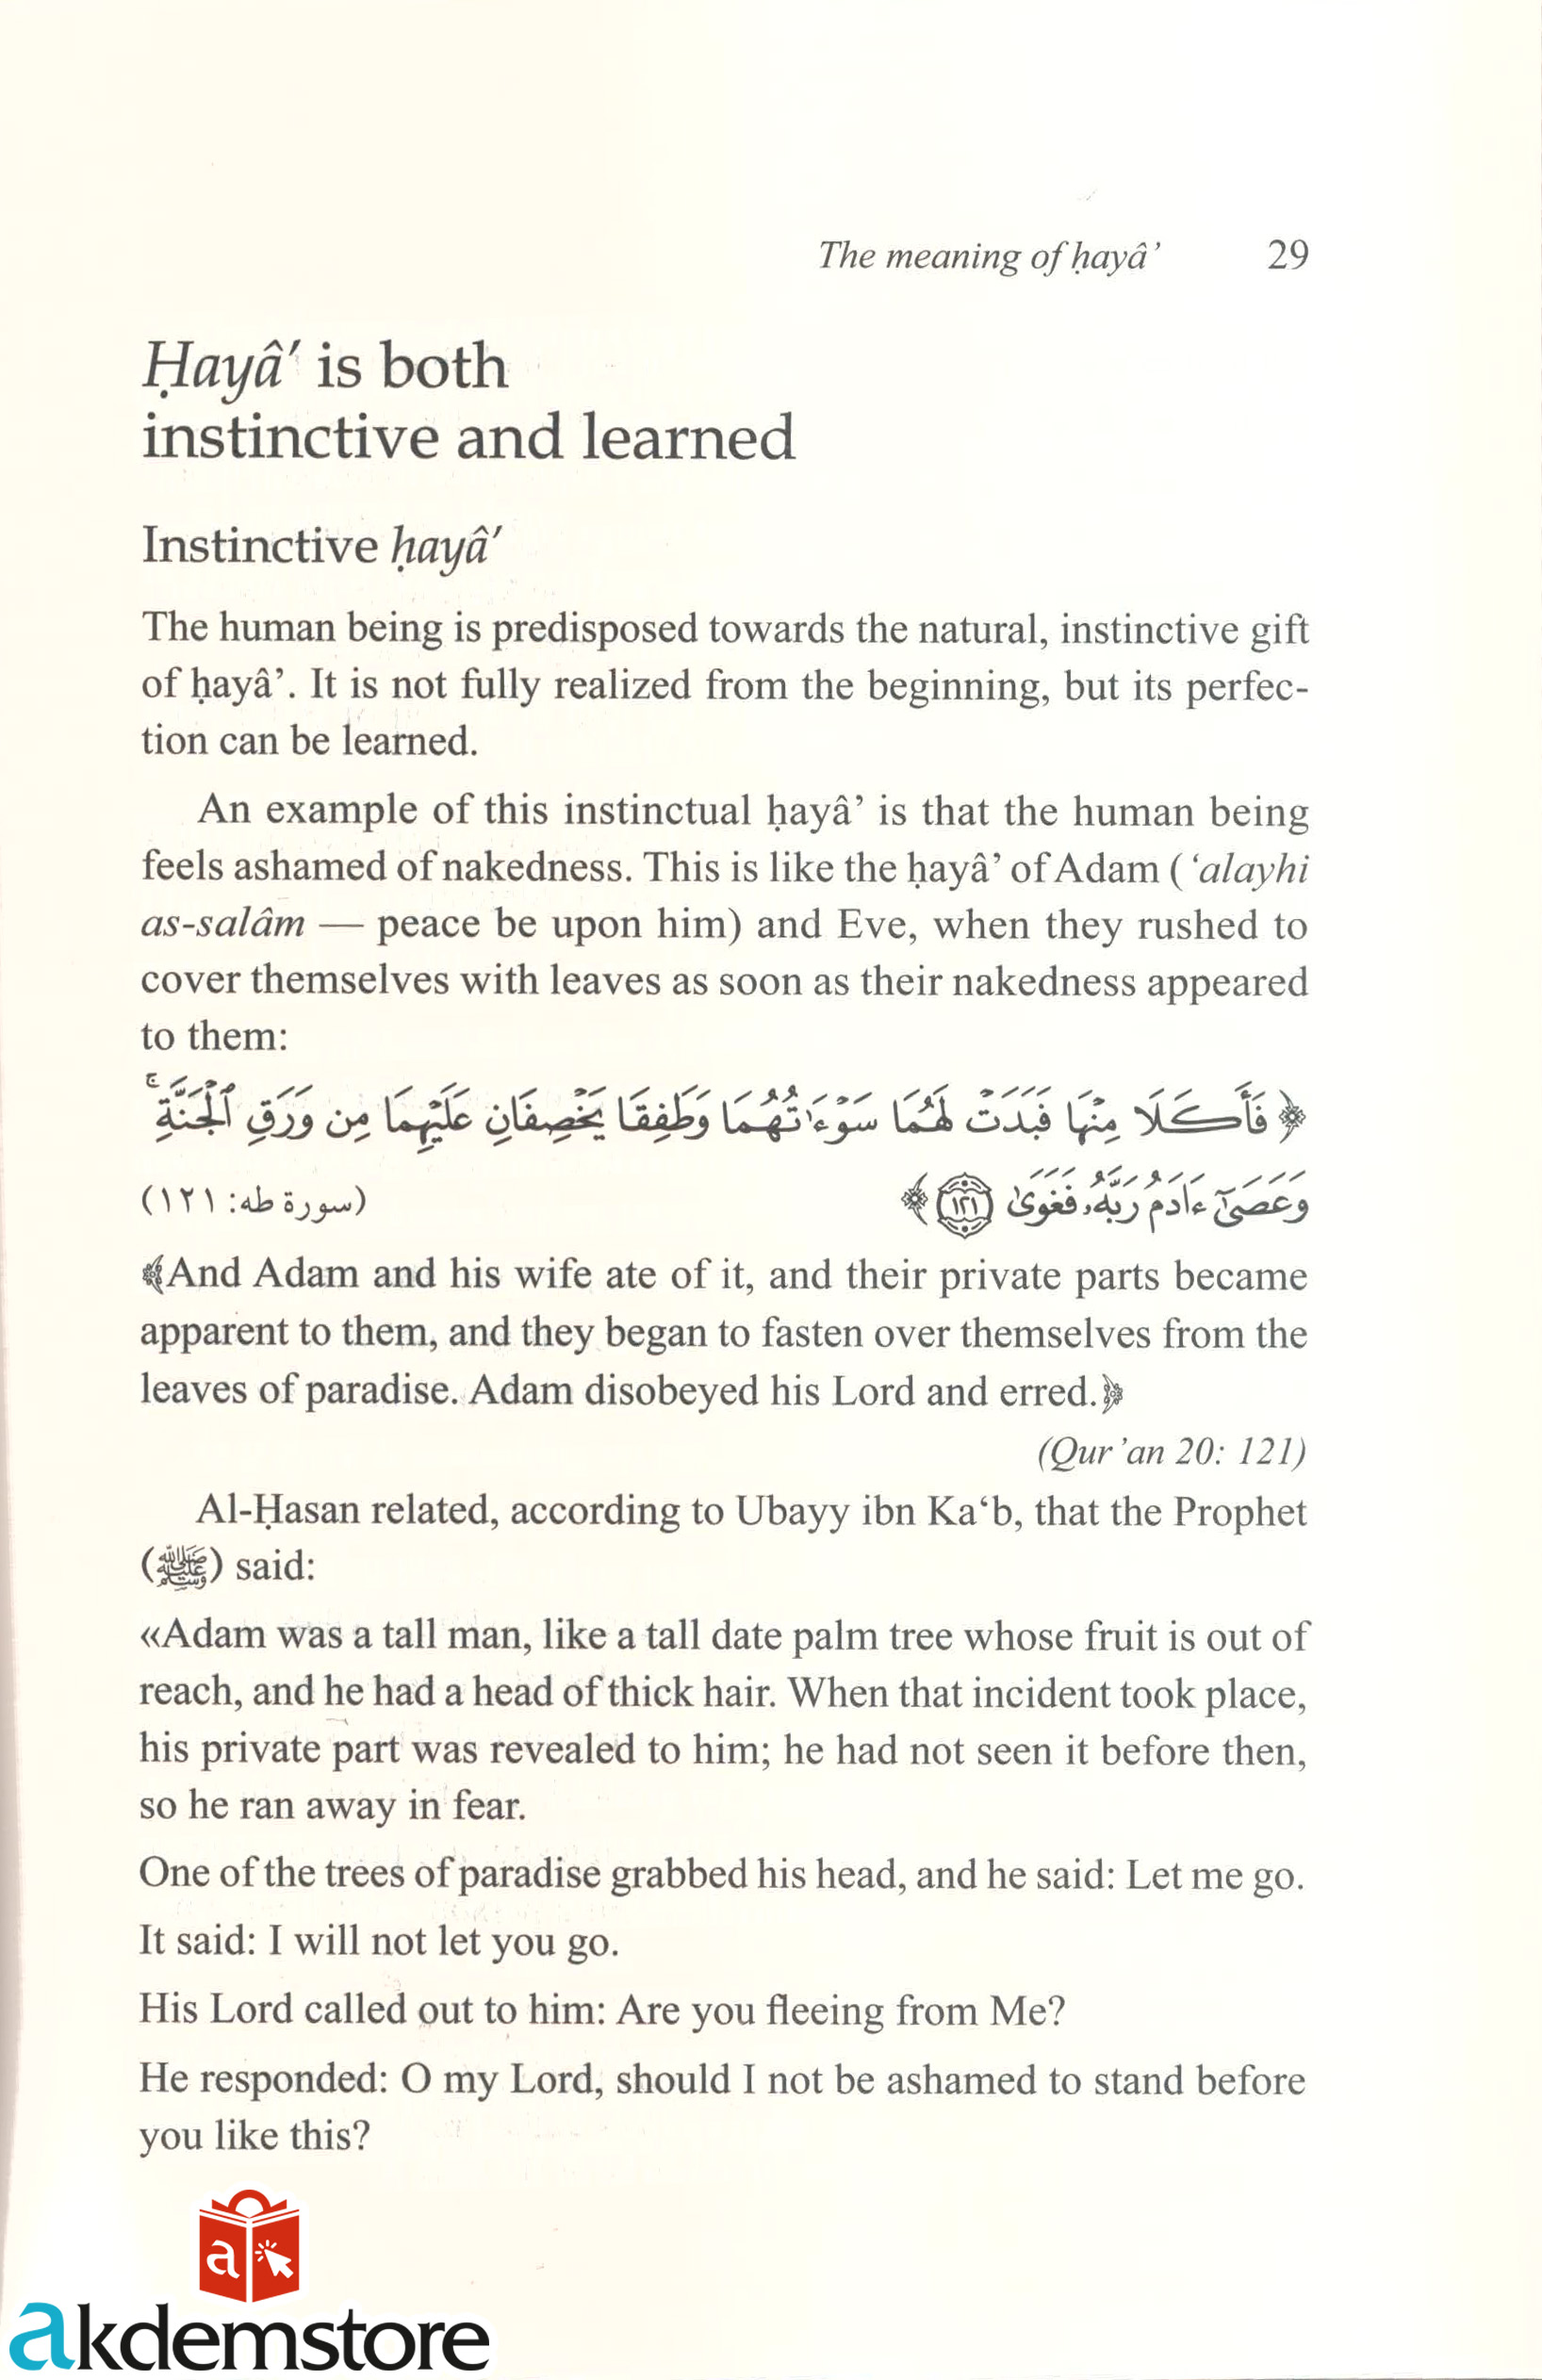 The meaning of ḥayâ’ 29
Ḥayâ’ is both
instinctive and learned
Instinctive ḥayâ’
The human being is predisposed towards the natural, instinctive gift
of ḥayâ’. It is not fully realized from the beginning, but its perfec-
tion can be learned.
An example of this instinctual ḥayâ’ is that the human being
feels ashamed of nakedness. This is like the ḥayâ’ of Adam (‘alayhi
as-salâm — peace be upon him) and Eve, when they rushed to
cover themselves with leaves as soon as their nakedness appeared
to them:
﴿فَأَكَلَا مِنْهَا فَبَدَتْ لَهُمَا سَوْءَٰتُهُمَا وَطَفِقَا يَخْصِفَانِ عَلَيْهِمَا مِن وَرَقِ ٱلْجَنَّةِ ۚ
وَعَصَىٰٓ ءَادَمُ رَبَّهُۥ فَغَوَىٰ ١٢١﴾ (سورة طه: ١٢١)
﴾And Adam and his wife ate of it, and their private parts became
apparent to them, and they began to fasten over themselves from the
leaves of paradise. Adam disobeyed his Lord and erred.﴿
(Qur’an 20: 121)
Al-Ḥasan related, according to Ubayy ibn Ka‘b, that the Prophet
(ﷺ) said:
«Adam was a tall man, like a tall date palm tree whose fruit is out of
reach, and he had a head of thick hair. When that incident took place,
his private part was revealed to him; he had not seen it before then,
so he ran away in fear.
One of the trees of paradise grabbed his head, and he said: Let me go.
It said: I will not let you go.
His Lord called out to him: Are you fleeing from Me?
He responded: O my Lord, should I not be ashamed to stand before
you like this?
a
akdemstore